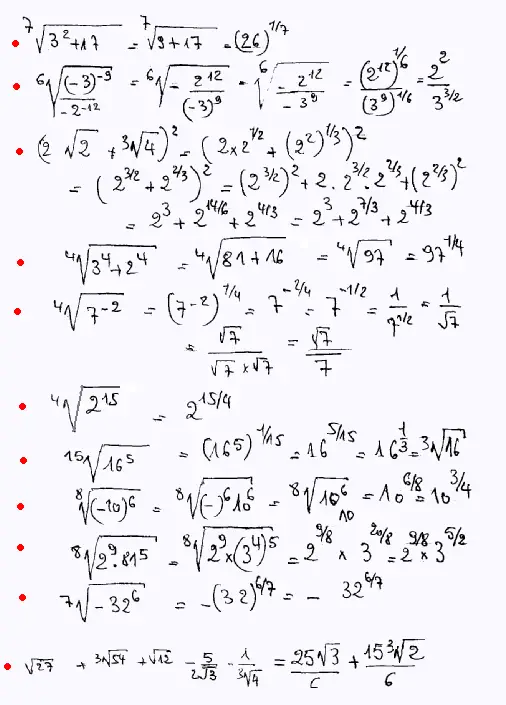 • ⁷√(3²+17) = ⁷√(9+17) = (26)^(1/7)
• ⁶√((-3)^-9 / -2^-12) = ⁶√(- 2^12 / (-3)^9) - ⁶√(- 2^12 / - 3^9) = (2^12)^(1/6) / (3^9)^(1/6) = 2^2 / 3^(3/2)
• (2 √2 + ³√4)² = (2×2^(1/2) + (2²)^(1/3))²
= (2^(3/2) + 2^(2/3))² = (2^(3/2))² + 2 . 2^(3/2) . 2^(2/3) + (2^(2/3))²
= 2³ + 2^(14/6) + 2^(4/3) = 2³ + 2^(7/3) + 2^(4/3)
• ⁴√(3⁴+2⁴) = ⁴√(81+16) = ⁴√97 = 97^(1/4)
• ⁴√(7^-2) = (7^-2)^(1/4) = 7^(-2/4) = 7^(-1/2) = 1/7^(1/2) = 1/√7
= √7 / (√7 × √7) = √7 / 7
• ⁴√(2^15) = 2^(15/4)
• ¹⁵√(16⁵) = (16⁵)^(1/15) = 16^(5/15) = 16^(1/3) = ³√16
• ⁸√((-10)⁶) = ⁸√((-)⁶10⁶) = ⁸√(10⁶) = 10^(6/8) = 10^(3/4)
10
• ⁸√(2⁹.81⁵) = ⁸√(2⁹×(3⁴)⁵) = 2^(9/8) × 3^(20/8) = 2^(9/8) × 3^(5/2)
• ⁷√(-32⁶) = -(32)^(6/7) = - 32^(6/7)
• √27 + ³√54 + √12 - 5/(2√3) - 1/³√4 = 25√3 / 6 + 15 ³√2 / 6